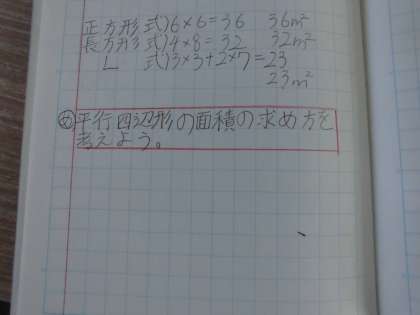 正方形 式)6×6=36 36m²
長方形 式)4×8=32 32m²
L 式)3×3+2×7=23
23m²
め 平行四辺形の面積の求め方を
考えよう。